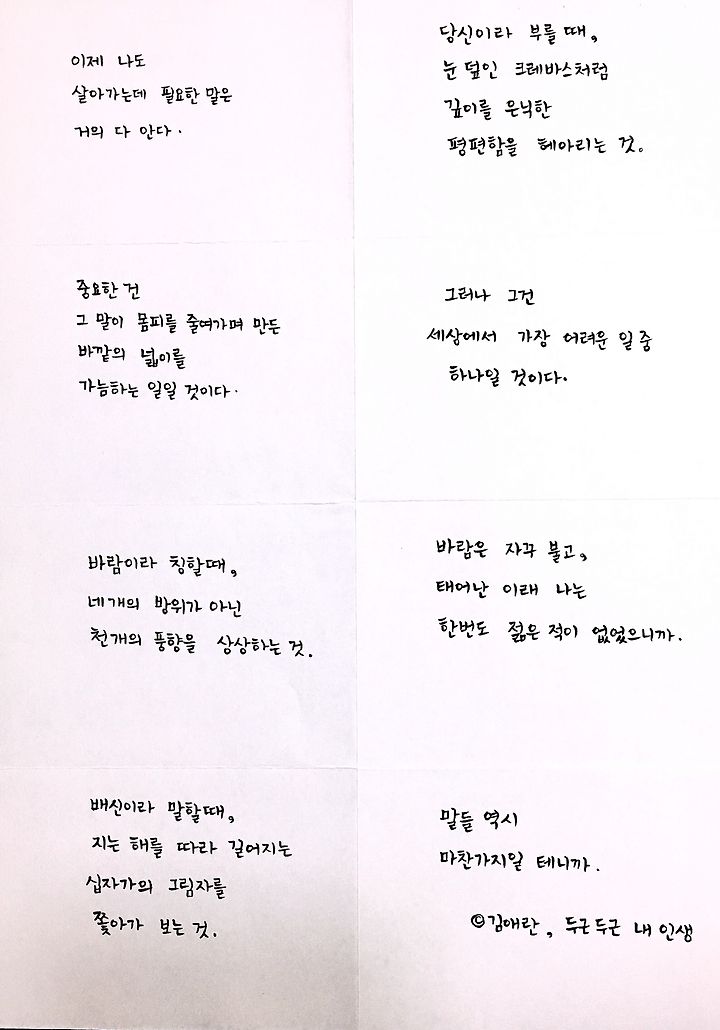 이제 나도
살아가는데 필요한 말은
거의 다 안다.
중요한 건
그 말이 몸피를 줄여가며 만든
바깥의 넓이를
가늠하는 일일 것이다.
바람이라 칭할때,
네개의 방위가 아닌
천개의 풍향을 상상하는 것.
배신이라 말할때,
지는 해를 따라 길어지는
십자가의 그림자를
쫓아가 보는 것.
당신이라 부를때,
눈 덮인 크레바스처럼
깊이를 은닉한
평편함을 헤아리는 것.
그러나 그건
세상에서 가장 어려운 일 중
하나일 것이다.
바람은 자꾸 불고,
태어난 이래 나는
한번도 젊은 적이 없었으니까.
말들 역시
마찬가지일 테니까.
©김애란, 두근두근 내 인생